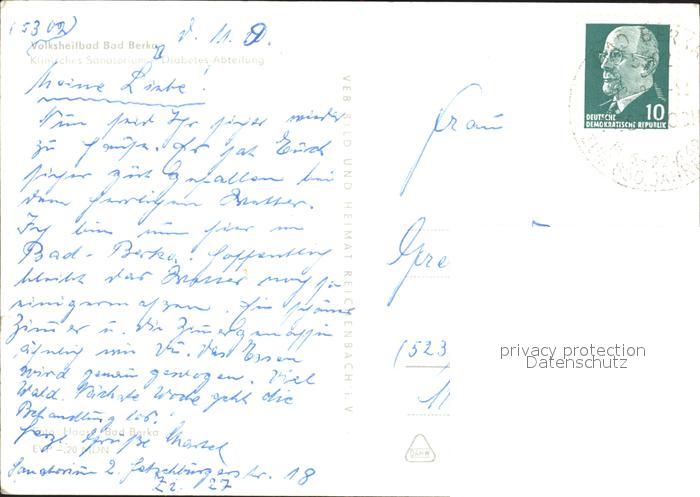 (5302)
d. 11. 9.
Volksheilbad Bad Berka
Klinisches Sanatorium Diabetes-Abteilung
Meine Liebe!
Nun seid Ihr sicher wieder
zu Hause. Es hat Euch
sicher gut gefallen bei
dem herrlichen Wetter.
Ich bin nun hier in
Bad-Berka. Hoffentlich
bleibt das Wetter noch so
einigermaßen. Ein schönes
Zimmer u. die Zimmergenossin
ähnlich wie Du. Das Essen
wird genau gewogen. Viel
Wald. Nächste Woche geht die
Behandlung los.
Foto: Haase, Bad Berka
Herzl. Grüße
EVP = .20 MDN
Sanatorium 2. 18
Zi. 27
VEB BILD UND HEIMAT REICHENBACH I. V.
DEUTSCHE
DEMOKRATISCHE REPUBLIK
10
Frau
Gre
(523
privacy protection
Datenschutz